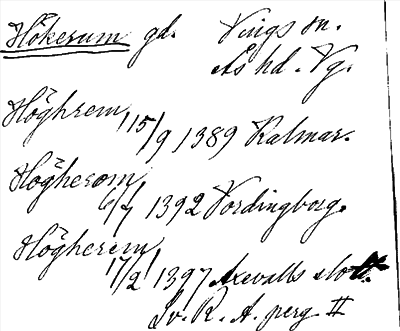 Hökerum gd. Vings sn.
Ås hd. Vg.
Höghrem 15/9 1389 Kalmar.
Högherom 6/7 1392 Vordingborg.
Högherem 17/2 1397 Axevalls slott.
Sv. R. A. perg. II